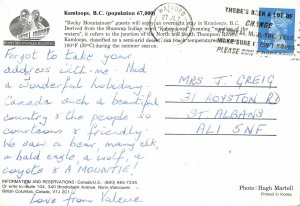 Kamloops, B.C. (population 67,000)
"Rocky Mountaineer" guests will enjoy an overnight stay in Kamloops, B.C.
Derived from the Shuswap Indian word
waters", it refers to the junction of the North and South Thompson
Kamloops, classified as a semi-arid
during the summer season.
Forgot to take your
address with me. Had
a wonderful holiday,
Canada such a beautiful
country & the people so
courteous & friendly.
We saw a bear, many elk,
a bald eagle, a wolf, a
coyote & A MOUNTIE!
INFORMATION AND RESERVATIONS: Canada/U.S. - (800) 665-7245
Or write to:
British Columbia, Canada V7J 2C1
Love from Valerie
WATFORD
THERE'S BEEN A LOT OF
CHANGE
PLEASE MAKE SURE
MRS J. GREIG
31 ROYSTON RD
ST ALBANS
AL1 5NF
Photo: Hugh Martell
Printed in Korea